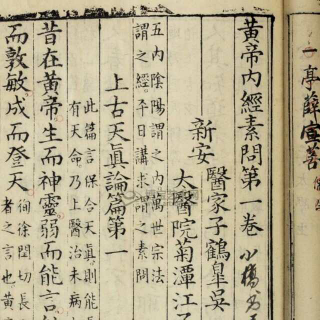 一亭薛宣菩
黃帝內經素問第一卷
新安
醫家子鶴皐吳
太醫院菊潭江子
五內陰陽謂之內萬世宗法
謂之經平日講求謂之素問
上古天眞論篇第一
此篇言保合天眞則能
有天命乃上醫治未病
昔在黃帝生而神靈弱而能言
而敦敏成而登天
徇徐閏切長
者之言也黃